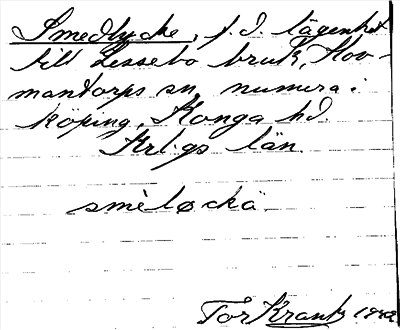 Smedlycke, f.d. lägenhet
till Lessebo bruk, Hov-
mantorps sn, numera i
köping, Konga hd.
Krbgs län.
smèløckä
Tor Krantz